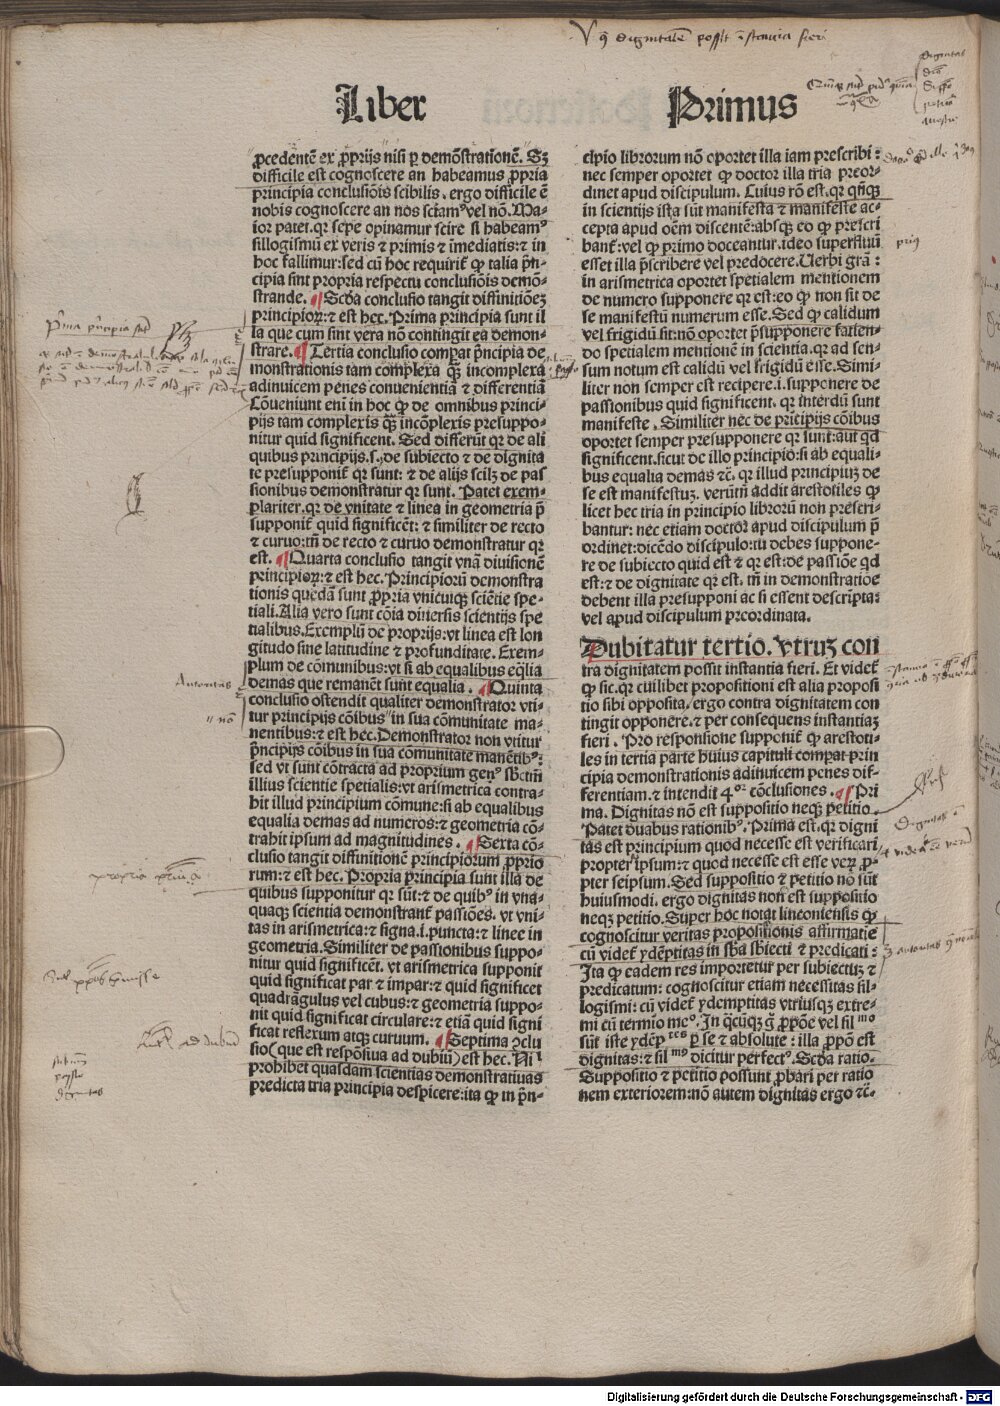 Liber Primus
ꝓcedentē ex ꝓprijs nisi ꝑ demōstrationē. Sꝫ
difficile est cognoscere an habeamus ꝓpria
principia conclusiōis scibilis. ergo difficile ē
nobis cognoscere an nos sciamꝰ vel nō. Ma-
ior patet. qꝛ sepe opinamur scire si habeamꝰ
sillogismū ex veris ⁊ primis ⁊ īmediatis: ⁊ in
hoc fallimur: sed cū hoc requirit̄ ꝙ talia p̄n-
cipia sint propria respectu conclusiōis demō-
strande. ¶ Scd̄a conclusio tangit diffinitiōeꝫ
principioꝝ: ⁊ est hec. Prima principia sunt il
la que cum sint vera nō contingit ea demon-
strare. ¶ Tertia conclusio comꝑat p̄ncipia de
monstrationis tam complexa q̄ꝫ incomplexa
adinuicem penes conuenientiā ⁊ differentiā
Cōueniunt eni in hoc ꝙ de omnibus princi-
pijs tam complexis q̄ꝫ incōplexis presuppo-
nitur quid significent. Sed differūt qꝛ de ali
quibus principijs. s. de subiecto ⁊ de dignita
te presupponit̄ qꝛ sunt: ⁊ de alijs scilꝫ de pas
sionibus demonstratur qꝛ sunt. Patet exem-
plariter. qꝛ de vnitate ⁊ linea in geometria p̄
supponit̄ quid significēt: ⁊ similiter de recto
⁊ curuo: tn̄ de recto ⁊ curuo demonstratur qꝛ
est. ¶ Quarta conclusio tangit vnā diuisionē
principioꝝ: ⁊ est hec. Principiorū demonstra
tionis quedā sunt ꝓpria vnicuiqꝫ sciētie spe-
tiali. Alia vero sunt cōia diuersis scientijs spe
tialibus. Exemplū de proprijs: vt linea est lon
gitudo sine latitudine ⁊ profunditate. Exem-
plum de cōmunibus: vt si ab equalibus eq̄lia
demas que remanēt sunt equalia. ¶ Quinta
conclusio ostendit qualiter demonstrator vti-
tur principijs cōibus in sua cōmunitate ma-
nentibus: ⁊ est hec. Demonstrator non vtitur
p̄ncipijs cōibus in sua cōmunitate manētibꝰ:
sed vt sunt cōtracta ad proprium genꝰ sb̄ctm̄
illius scientie spetialis: vt arismetrica contra-
hit illud principium cōmune: si ab equalibus
equalia demas ad numeros: ⁊ geometria cō-
trahit ipsum ad magnitudines. ¶ Sexta cō-
clusio tangit diffinitionē principiorum ꝓprio
rum: ⁊ est hec. Propria principia sunt illa de
quibus supponitur qꝛ sūt: ⁊ de quibꝰ in vna-
quaqꝫ scientia demonstrant̄ passiōes. vt vni-
tas in arismetrica: ⁊ signa. i. puncta: ⁊ linee in
geometria. Similiter de passionibus suppo-
nitur quid significēt. vt arismetrica supponit
quid significat par ⁊ impar: ⁊ quid significet
quadrāgulus vel cubus: ⁊ geometria suppo-
nit quid significat circulare: ⁊ etiā quid signi
ficat reflexum atqꝫ curuum. ¶ Septima ꝯclu
sio (que est respōsiua ad dubiū) est hec. Ni
prohibet quasdam scientias demonstratiuas
predicta tria principia despicere: ita ꝙ in p̄n-
cipio librorum nō oportet illa iam prescribi:
nec semper oportet ꝙ doctor illa tria preor-
dinet apud discipulum. Cuius rō est. qꝛ qn̄qꝫ
in scientijs ista sūt manifesta ⁊ manifeste ac-
cepta apud oēm discentē: absqꝫ eo ꝙ prescri
bant̄: vel ꝙ primo doceantur. ideo superfluū
esset illa p̄scribere vel predocere. Uerbi grā:
in arismetrica oportet spetialem mentionem
de numero supponere qꝛ est: eo ꝙ non sit de
se manifestū numerum esse. Sed ꝙ calidum
vel frigidū sit: nō oportet p̄supponere facien-
do spetialem mentionē in scientia. qꝛ ad sen-
sum notum est calidū vel frigidū esse. Simi-
liter non semper est recipere. i. supponere de
passionibus quid significent. qꝛ interdū sunt
manifeste. Similiter nec de pricipijs cōibus
oportet semper presupponere qꝛ sunt: aut qd
significent. sicut de illo principio: si ab equali-
bus equalia demas ⁊c̄. qꝛ illud principiuꝫ de
se est manifestuꝫ. verūtn̄ addit arestotiles ꝙ
licet hec tria in principio librorū non prescri-
bantur: nec etiam doctor apud discipulum p̄
ordinet: dicēdo discipulo: tu debes suppone-
re de subiecto quid est ⁊ qꝛ est: de passiōe qd
est: ⁊ de dignitate qꝛ est. tn̄ in demonstratiōe
debent illa presupponi ac si essent descripta:
vel apud discipulum preordinata.
Dubitatur tertio. vtruꝫ con
tra dignitatem possit instantia fieri. Et videt̄
ꝙ sic. qꝛ cuilibet propositioni est alia proposi
tio sibi opposita. ergo contra dignitatem con
tingit opponere. ⁊ per consequens instantiaꝫ
fieri. Pro responsione supponit̄ ꝙ arestoti-
les in tertia parte huius capituli comparat prin
cipia demonstrationis adinuicem penes dif-
ferentiam. ⁊ intendit 4ᵒʳ cōclusiones. ¶ Pri
ma. Dignitas nō est suppositio neqꝫ petitio
Patet duabus rationibꝰ. Prima est. qꝛ digni
tas est principium quod necesse est verificari
propter ipsum: ⁊ quod necesse est esse verꝫ ꝓ-
pter seipsum. Sed suppositio ⁊ petitio nō sūt
huiusmodi. ergo dignitas non est suppositio
neqꝫ petitio. Super hoc notat linconiensis ꝙ
cognoscitur veritas propositionis affirmatie
cū videt̄ ydēptitas in sb̄a sb̄iecti ⁊ predicati:
Ita ꝙ eadem res importetur per subiectuꝫ ⁊
predicatum: cognoscitur etiam necessitas sil-
logismi: cū videt̄ ydemptitas vtriusqꝫ extre-
mi cū termio mcᵒ. In q̄cūqꝫ g̊ ꝓpōe vel silᵐᵒ
sūt iste ydēpᵗᵉˢ ꝑ se ⁊ absolute: illa ꝓpō est
dignitas: ⁊ silᵐᵒ dicitur perfectꝰ. Scd̄a ratio.
Suppositio ⁊ petitio possunt ꝓbari per ratio
nem exteriorem: nō autem dignitas ergo ⁊c̄.
Digitalisierung gefördert durch die Deutsche Forschungsgemeinschaft - DFG